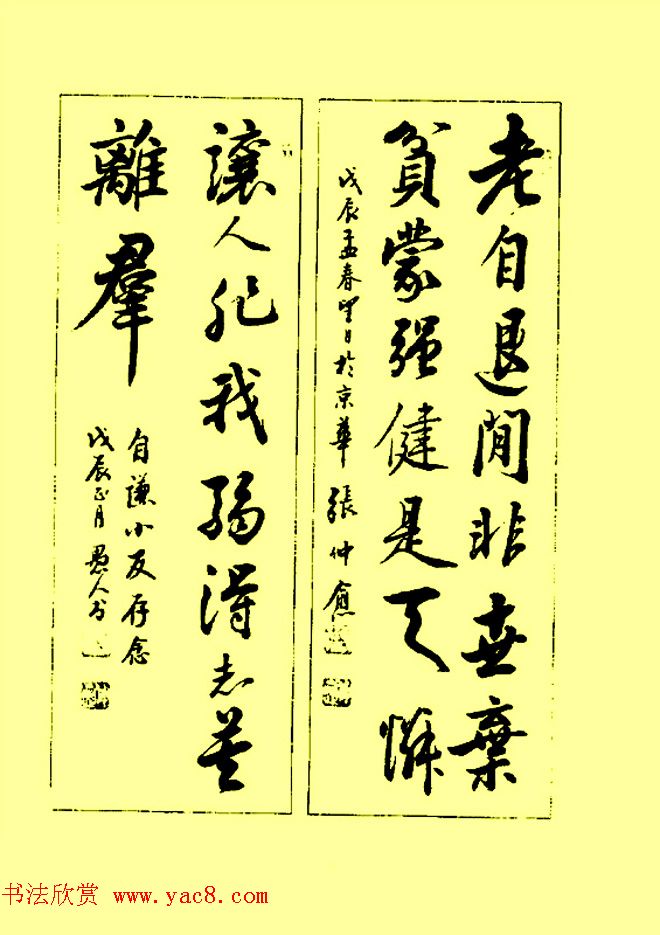 老自退閒非世棄
貧蒙强健是天憐
戊辰孟春望日於京華 張仲愈
讓人非我弱得志莫
離羣
自謙小友存念
戊辰正月 愚人书
书法欣赏 www.yac8.com